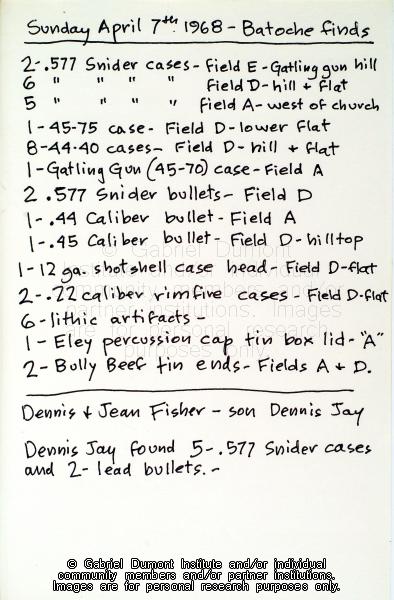 Sunday April 7th 1968 - Batoche finds
2-.577 Snider cases - Field E - Gatling gun hill
6 " " " " Field D - hill + flat
5 " " " " Field A - west of church
1-45-75 case - Field D - lower flat
8-44-40 cases - Field D - hill + flat
1-Gatling Gun (45-70) case - Field A
2 .577 Snider bullets - Field D
1-.44 Caliber bullet - Field A
1-.45 Caliber bullet - Field D - hilltop
1-12 ga. shotshell case head - Field D-flat
2-.22 caliber rimfire cases - Field D-flat
6-lithic artifacts -
1-Eley percussion cap tin box lid - "A"
2-Bully Beef tin ends - Fields A + D.
Dennis + Jean Fisher - son Dennis Jay
Dennis Jay found 5-.577 Snider cases
and 2-lead bullets.-
© Gabriel Dumont
Institute and/or individual
community members and/or
partner institutions. Images
are for personal research
purposes only.
© Gabriel Dumont Institute and/or individual
community members and/or partner institutions.
Images are for personal research purposes only.